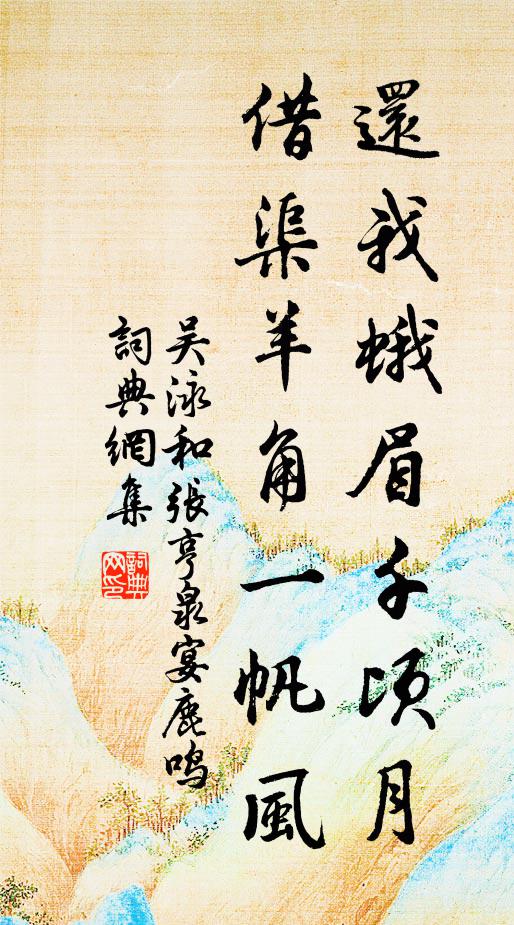 還我蛾眉千頃月
借渠羊角一帆風
吴泳和張亨泉宴鹿鳴
詞典網集
詞典
网印